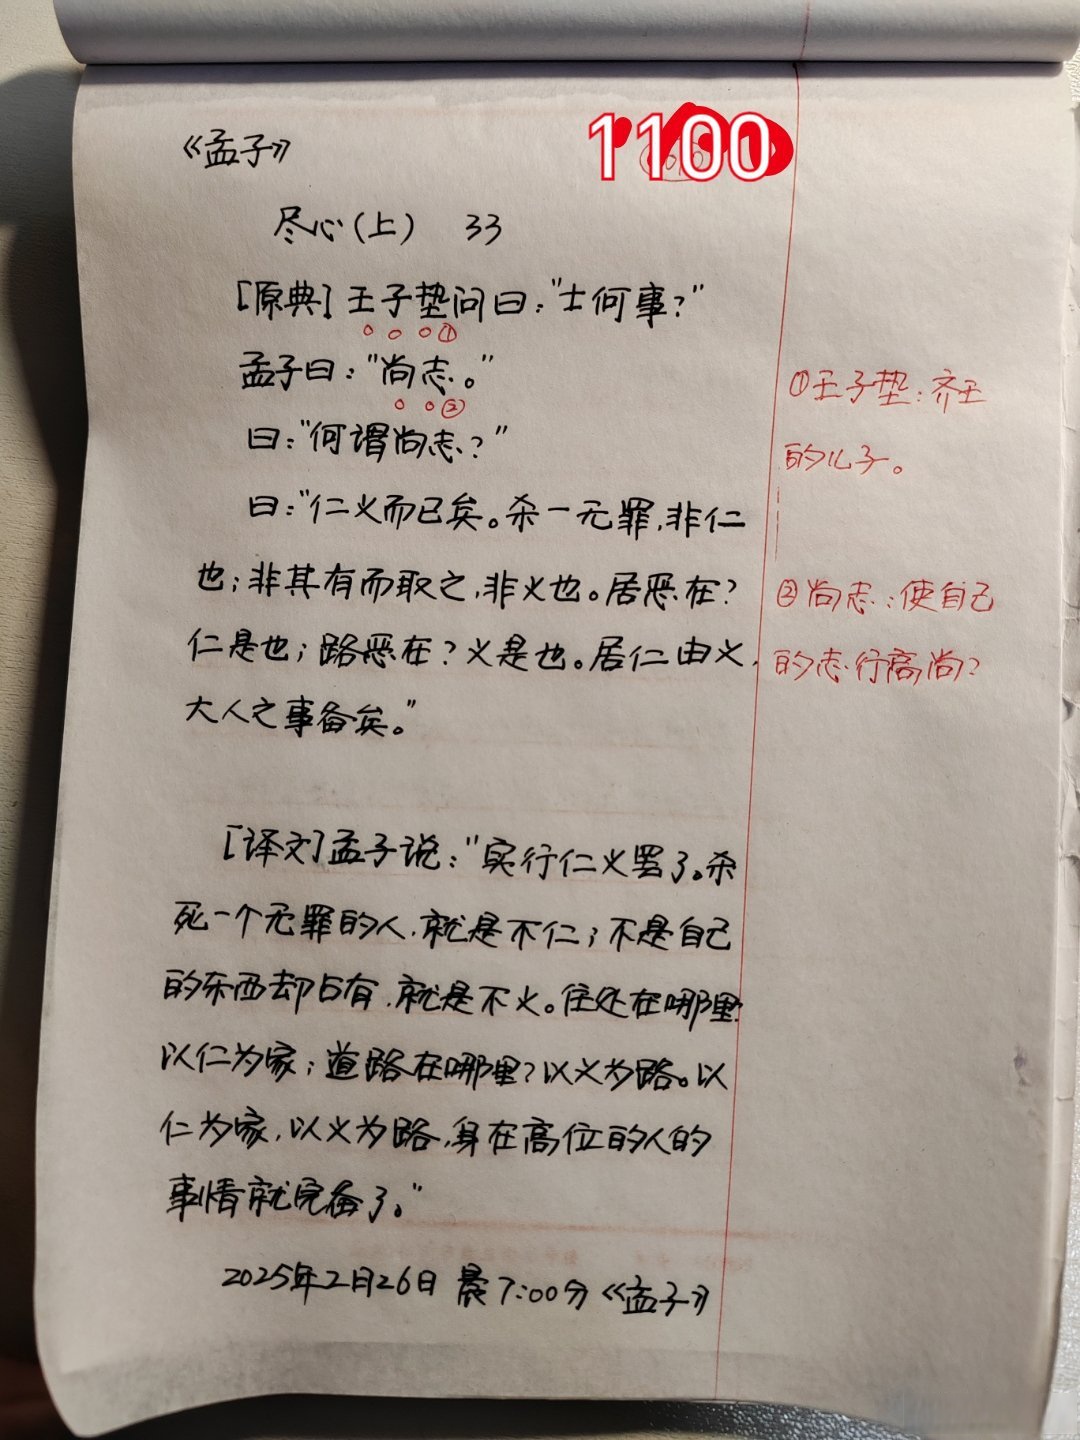 《孟子》
1100
尽心(上) 33
[原典]王子垫问曰:"士何事?"
①
孟子曰:"尚志。"
②
曰:"何谓尚志?"
曰:"仁义而已矣。杀一无罪,非仁
也;非其有而取之,非义也。居恶在?
仁是也;路恶在?义是也。居仁由义,
大人之事备矣。"
①王子垫:齐王
的儿子。
②尚志:使自己
的志行高尚?
[译文]孟子说:"实行仁义罢了。杀
死一个无罪的人,就是不仁;不是自己
的东西却占有,就是不义。住处在哪里?
以仁为家;道路在哪里?以义为路。以
仁为家,以义为路,身在高位的人的
事情就完备了。"
2025年2月26日 晨7:00分《孟子》